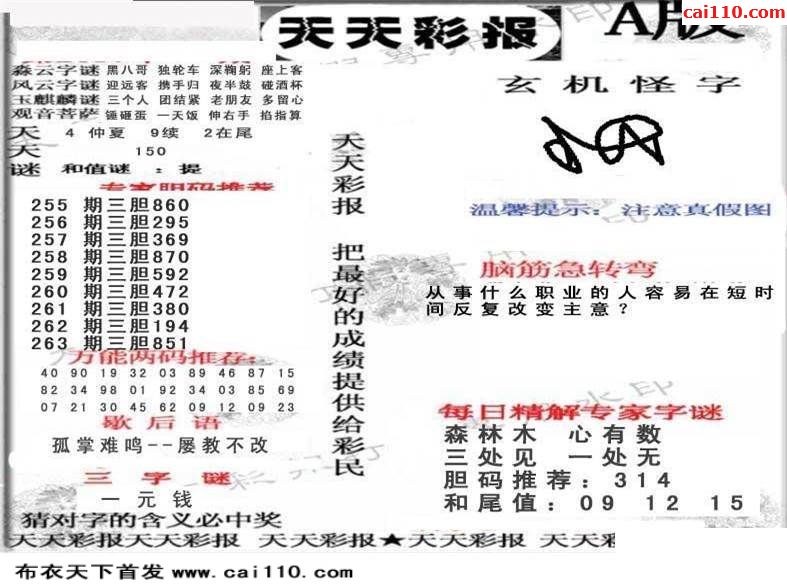 cai110.com
天天彩报
A版
森云字谜 黑八哥 独轮车 深鞠躬 座上客
风云字谜 迎远客 携手归 夜半鼓 碰酒杯
玉麒麟谜 三个人 团结紧 老朋友 多留心
观音菩萨 锤砸蛋 一天饭 伸右手 掐指算
天 4 仲夏 9续 2在尾
天 150
谜 和值谜 : 提
专家胆码推荐
255 期三胆860
256 期三胆295
257 期三胆369
258 期三胆870
259 期三胆592
260 期三胆472
261 期三胆380
262 期三胆194
263 期三胆851
万能两码推荐:
40 90 19 32 03 89 46 87 15
82 34 98 01 92 34 03 85 69
07 21 30 45 62 09 12 09 23
歇后语
孤掌难鸣--屡教不改
三字谜
一元钱
猜对字的含义必中奖
天天彩报 把最好的成绩提供给彩民
玄机怪字
温馨提示: 注意真假图
脑筋急转弯
从事什么职业的人容易在短时
间反复改变主意?
每日精解专家字谜
森林木 心有数
三处见 一处无
胆码推荐: 314
和尾值: 09 12 15
天天彩报天天彩报 天天彩报★天天彩报 天天彩
布衣天下首发 www.cai110.com